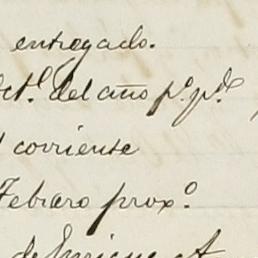 entregado.
Oct.e del año p.o p.do
l corriente
Febrero prox.o
de Enrique A